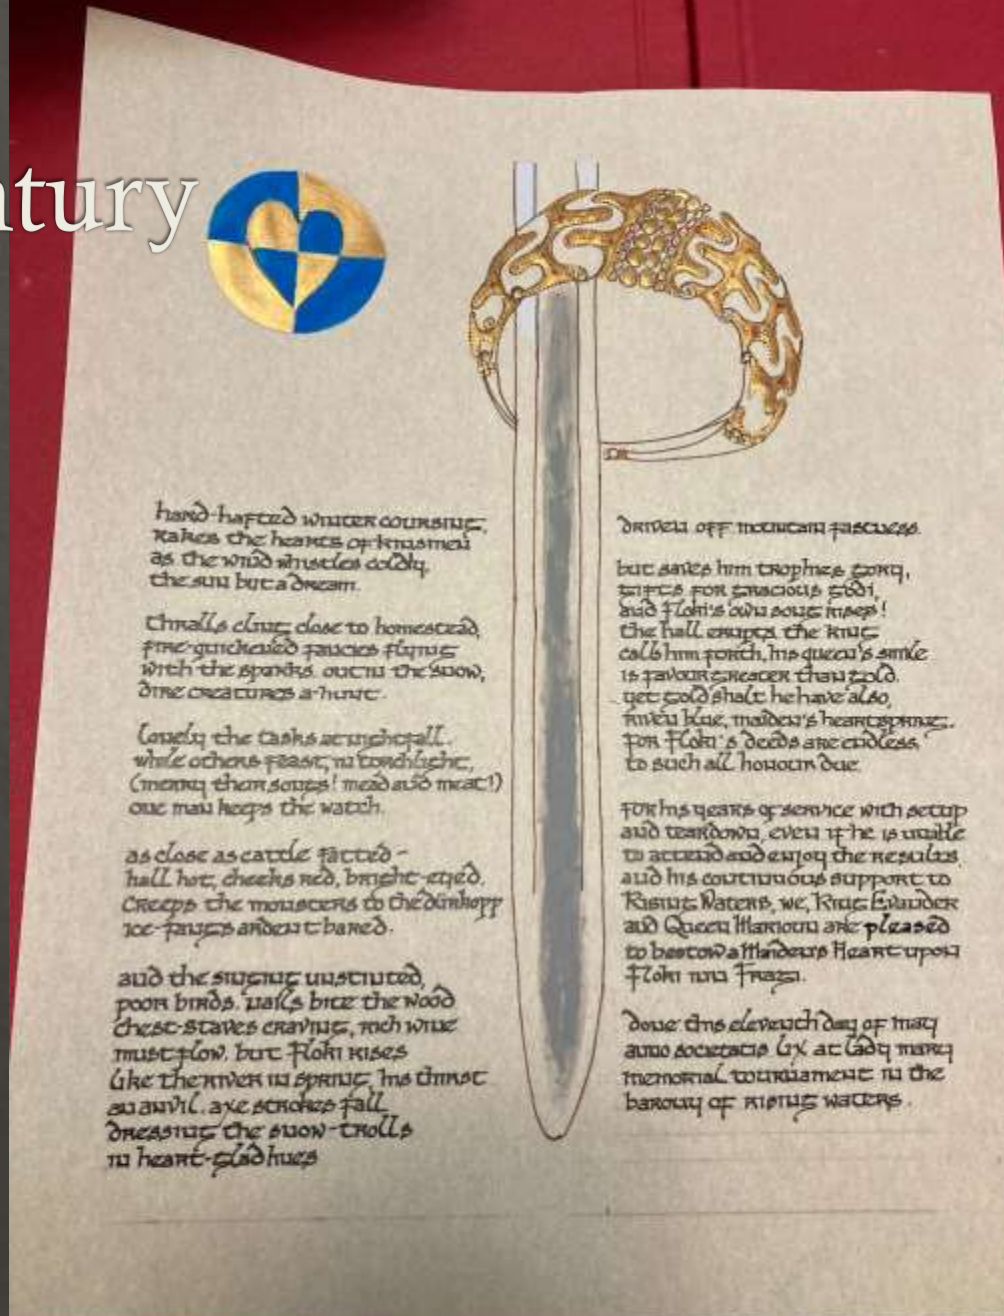 ntury
hard-hafted winter coursing,
rakes the hearts of kinsmen
as the wind whistles coldly,
the sun but a dream.
thralls cling close to homestead,
fire-quickened fancies flying
with the sparks. out in the snow,
dire creatures a-hunt.
lonely the tasks at nightfall.
while others feast, in torchlight,
(merry their songs! mead and meat!)
one man keeps the watch.
as close as cattle fatted -
hall hot, cheeks red, bright-eyed.
creeps the monsters to the
ice-fangs ardent bared.
and the singing unstinted,
poor birds. nails bite the wood
chest-staves craving, rich wine
must flow. but Floki rises
like the river in spring, his thirst
an anvil. axe strokes fall
dressing the snow-trolls
in heart-glad hues
driven off mountain fastness.
but saves him trophies gory,
gifts for gracious godi,
and Floki's own song rises!
the hall erupts. the king
calls him forth, his queen's smile
is favour greater than gold.
yet gold shalt he have also,
riven blue, maiden's heartspring.
for Floki's deeds are endless,
to such all honour due.
for his years of service with setup
and teardown, even if he is unable
to attend and enjoy the results,
and his continuous support to
Rising Waters, we, King Evander
and Queen Marioun are pleased
to bestow a Maiden's Heart upon
Floki inn Fragi.
done this eleventh day of may
anno societatis lix at lady mary
memorial tournament in the
barony of rising waters.